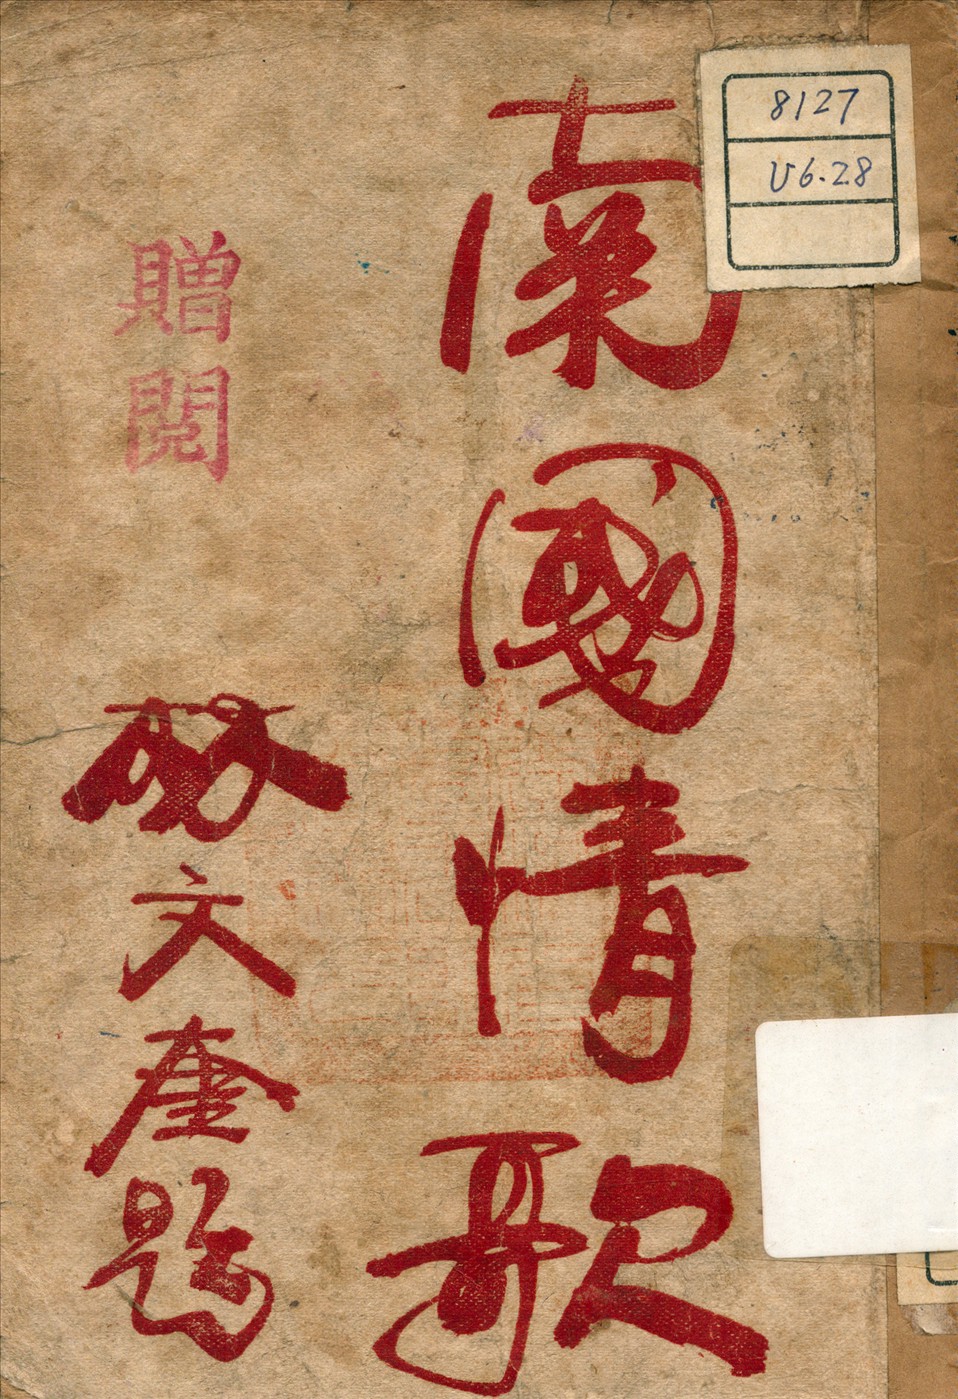 8127
U6.28
南國情歌
文奎題
贈閱